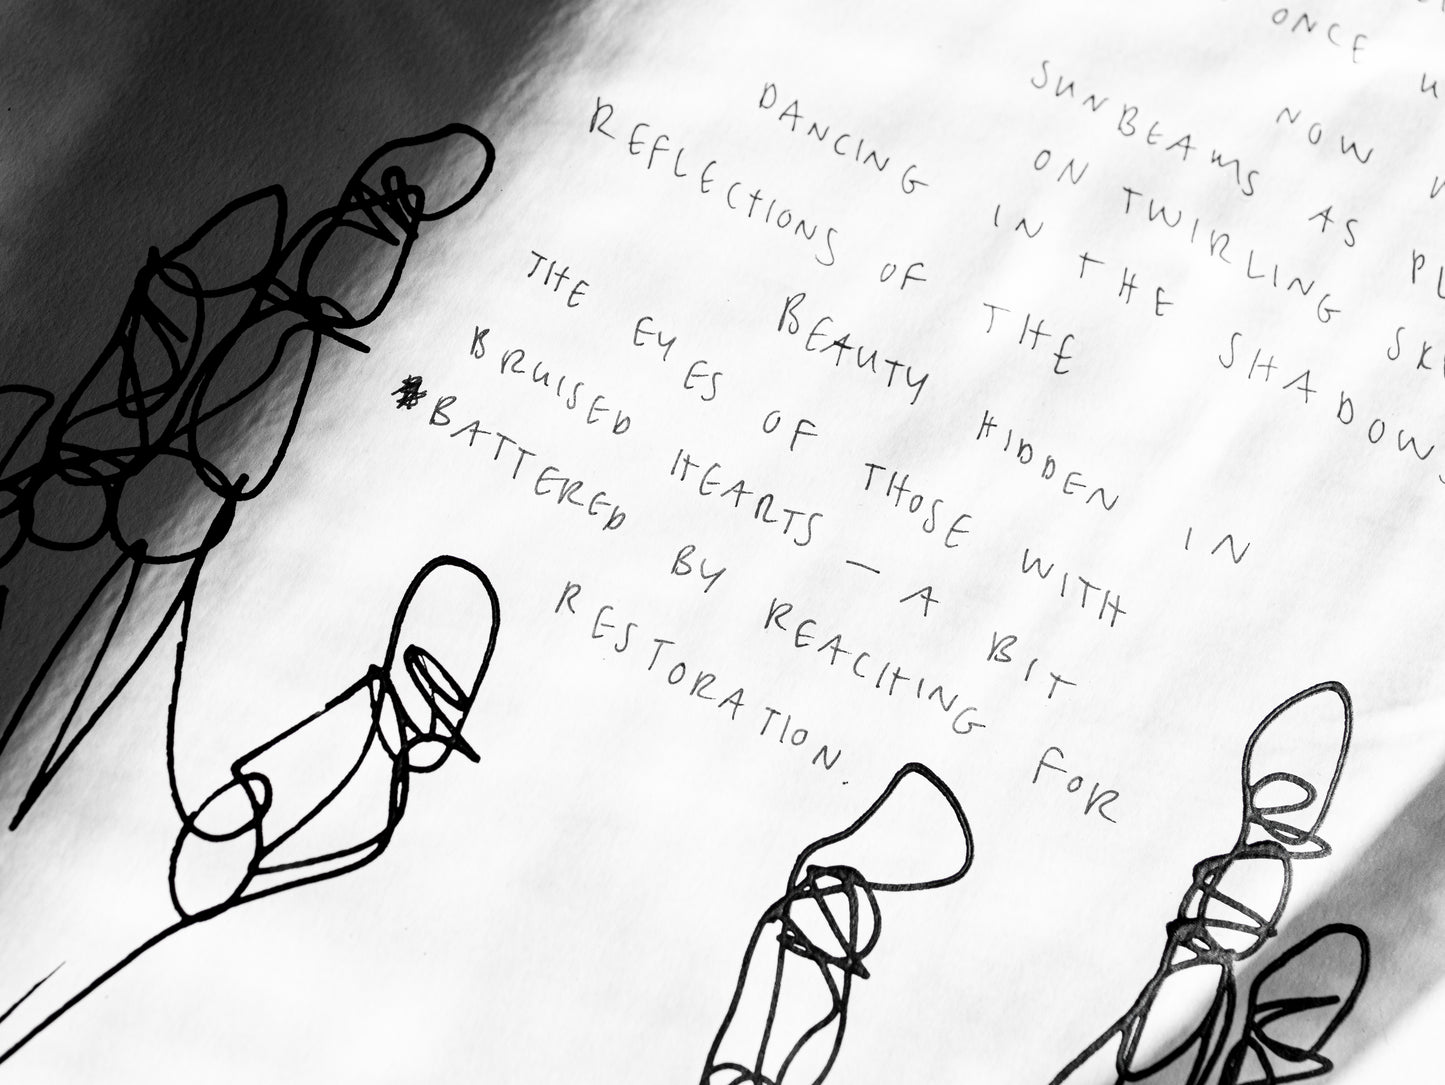 ONCE
NOW
SUNBEAMS AS
ON TWIRLING
DANCING IN THE SHADOWS
REFLECTIONS OF THE
BEAUTY HIDDEN IN
THE EYES OF THOSE WITH
BRUISED HEARTS — A BIT
BATTERED BY REACHING FOR
RESTORATION.